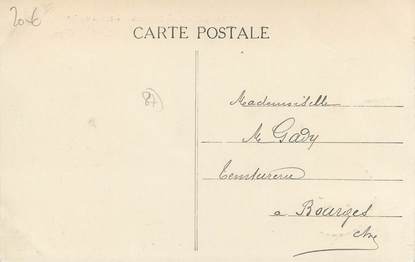 20€
CARTE POSTALE
87
Mademoiselle
M Gady
Teinturerie
a Bourges
Cher